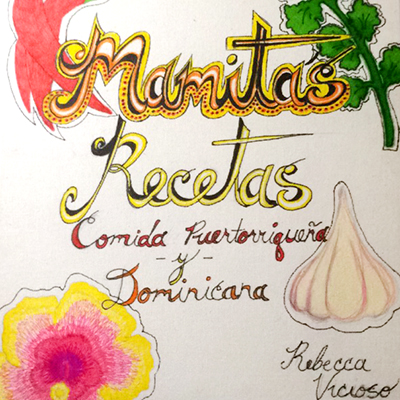 Mamitas
Recetas
Comida Puertorriqueña
-y-
Dominicana
Rebecca
Vicioso